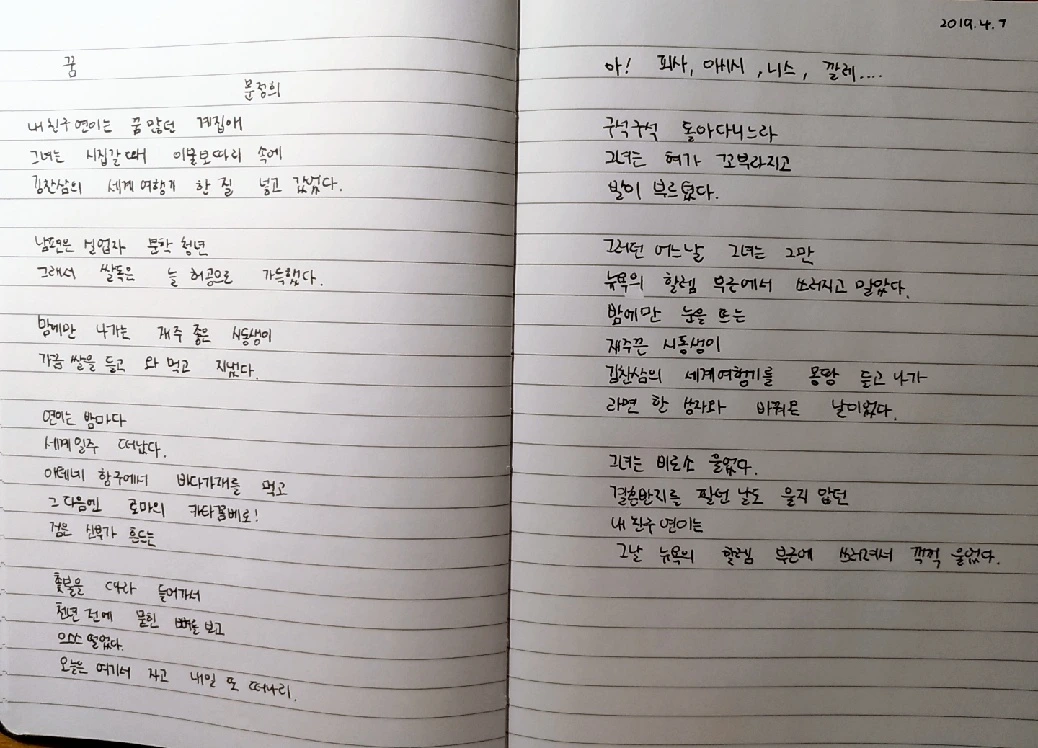 꿈
문정희
내 친구 연이는 꿈 많던 계집애
그녀는 시집갈 때 이불보따리 속에
김찬삼의 세계여행기 한 질 넣고 갔었다.
남편은 실업자 문학 청년
그래서 쌀독은 늘 허공으로 가득했다.
밤에만 나가는 재주 좋은 시동생이
가끔 쌀을 들고 와 먹고 지냈다.
연이는 밤마다
세계일주 떠났다.
아테네 항구에서 바다가재를 먹고
그 다음엔 로마의 카타꼼베로!
검은 신부가 흔드는
촛불을 따라 들어가서
천년 전에 묻힌 뼈를 보고
으스스 떨었다.
오늘은 여기서 자고 내일 또 떠나리.
2019.4.7
아! 피사, 아시시, 니스, 깔레....
구석구석 돌아다니느라
그녀는 혀가 꼬부라지고
발이 부르텄다.
그러던 어느날 그녀는 그만
뉴욕의 할렘 부근에서 쓰러지고 말았다.
밤에만 눈을 뜨는
재주꾼 시동생이
김찬삼의 세계여행기를 몽땅 들고 나가
라면 한 상자와 바꿔온 날이었다.
그녀는 비로소 울었다.
결혼반지를 팔던 날도 울지 않던
내 친구 연이는
그날 뉴욕의 할렘 부근에 쓰러져서 꺽꺽 울었다.